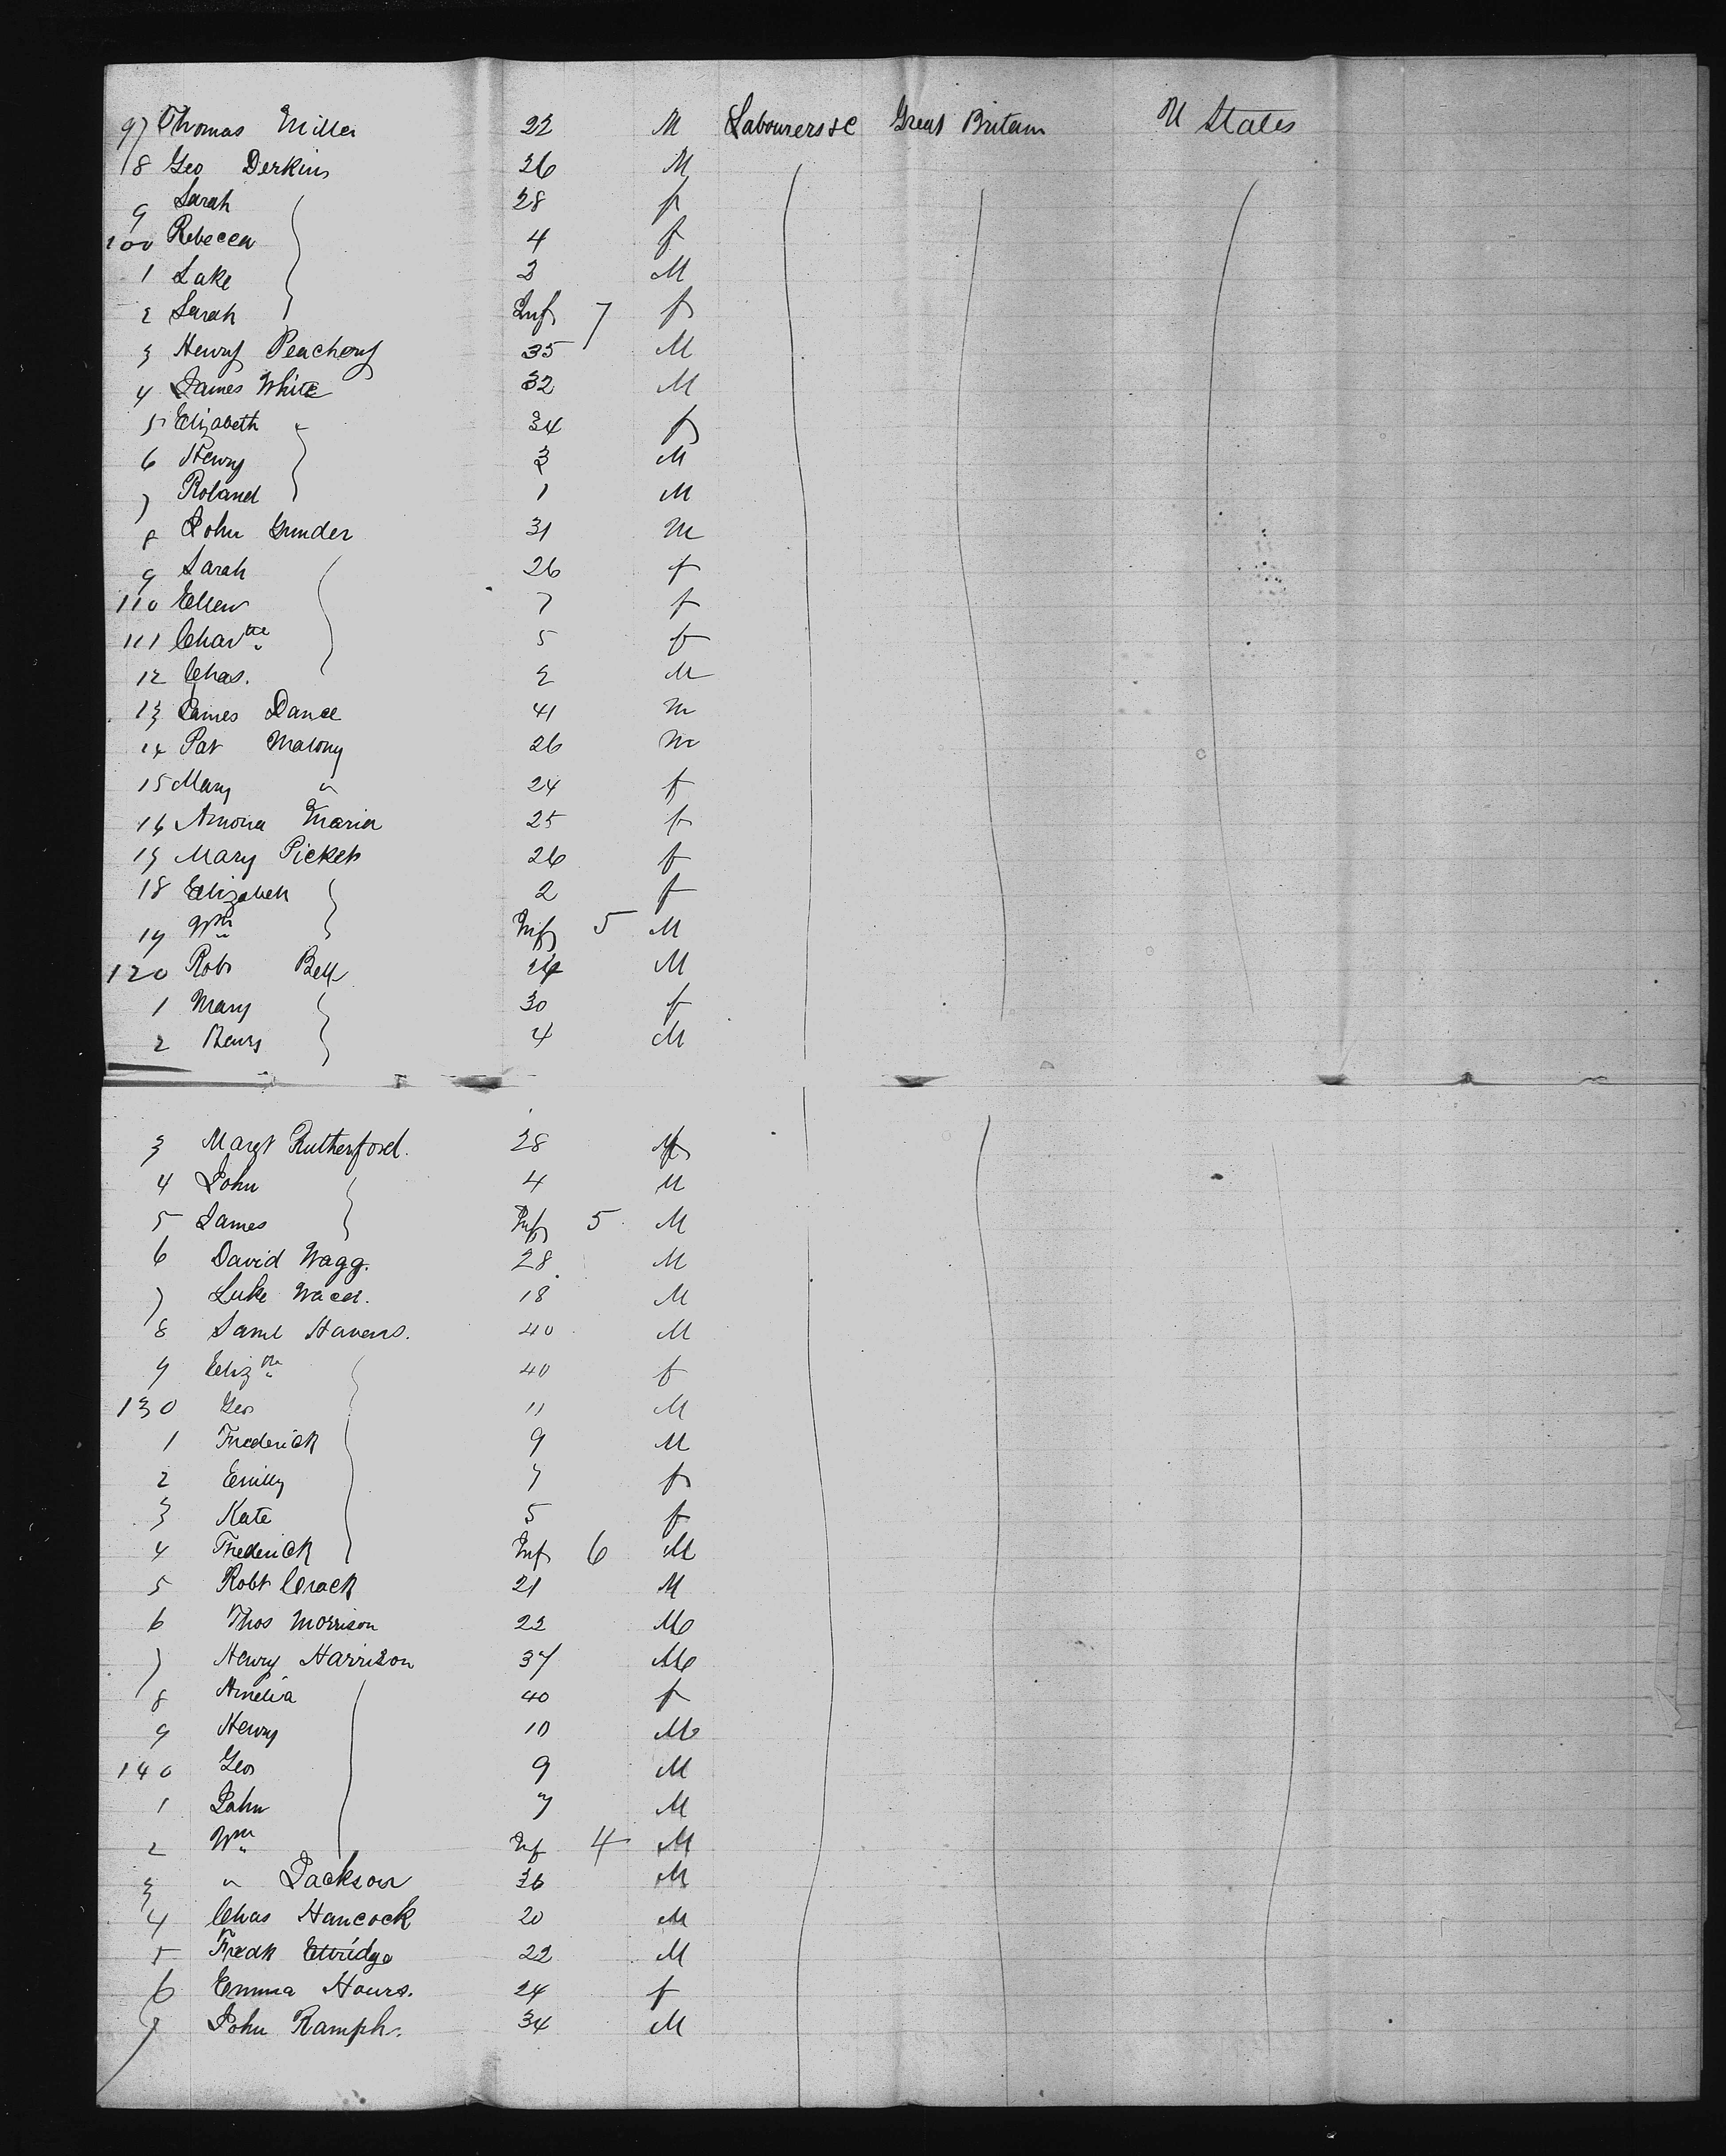 97 Thomas Miller 22 M Labourers &c Great Britain U States
8 Geo Derkins 26 M
9 Sarah 28 f
100 Rebecca 4 f
1 Lake 3 M
2 Sarah Inf 7 f
3 Henry Peachey 35 M
4 James White 32 M
5 Elizabeth 34 f
6 Henry 3 M
7 Roland 1 M
8 John Gunder 31 M
9 Sarah 26 f
110 Ellen 7 f
111 Chartte 5 f
12 Chas. 2 M
13 James Dance 41 M
14 Pat Malony 26 M
15 Mary " 24 f
16 Maria 25 f
17 Mary Picket 26 f
18 Elizabeth 2 f
19 Wm Inf 5 M
120 Robt Bell 26 M
1 Mary 30 f
2 Henry 4 M
3 Margt Rutherford. 28 f
4 John 4 M
5 James Inf 5 M
6 David Wagg. 28 M
7 Luke 18 M
8 Saml Havens. 40 M
9 Elizth 40 f
130 Geo 11 M
1 Frederick 9 M
2 Emily 7 f
3 Kate 5 f
4 Frederick Inf 6 M
5 Robt Crack 21 M
6 Thos Morrison 22 M
7 Henry Harrison 37 M
8 Amelia 40 f
9 Henry 10 M
140 Geo 9 M
1 John 7 M
2 Wm Inf 4 M
3 " Jackson 36 M
4 Chas Hancock 20 M
5 Fredk Elridge 22 M
6 Emma Hours. 24 f
7 John Ramph. 34 M